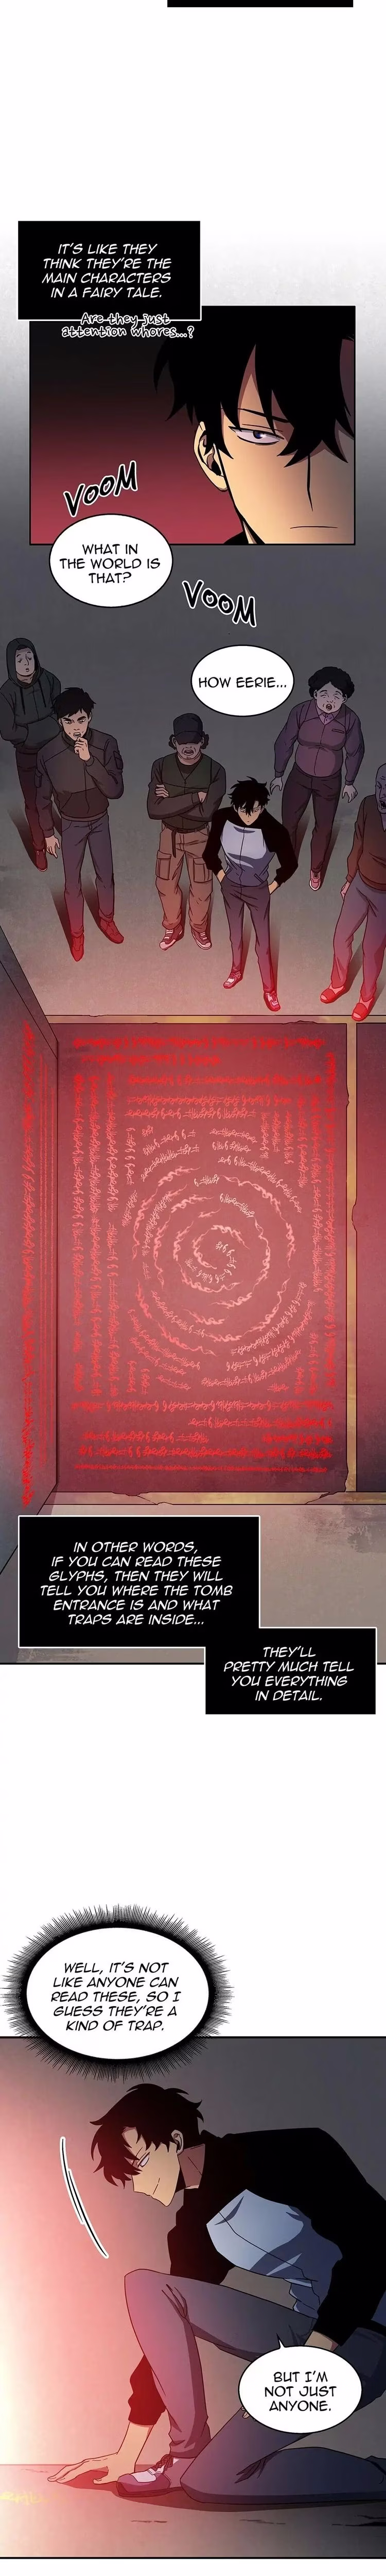 IT'S LIKE THEY
THINK THEY'RE THE
MAIN CHARACTERS
IN A FAIRY TALE.
Are they just
attention whores...?
VOOM
WHAT IN
THE WORLD IS
THAT?
VOOM
HOW EERIE...
IN OTHER WORDS,
IF YOU CAN READ THESE
GLYPHS, THEN THEY WILL
TELL YOU WHERE THE TOMB
ENTRANCE IS AND WHAT
TRAPS ARE INSIDE...
THEY'LL
PRETTY MUCH TELL
YOU EVERYTHING
IN DETAIL.
WELL, IT'S NOT
LIKE ANYONE CAN
READ THESE, SO I
GUESS THEY'RE A
KIND OF TRAP.
BUT I'M
NOT JUST
ANYONE.